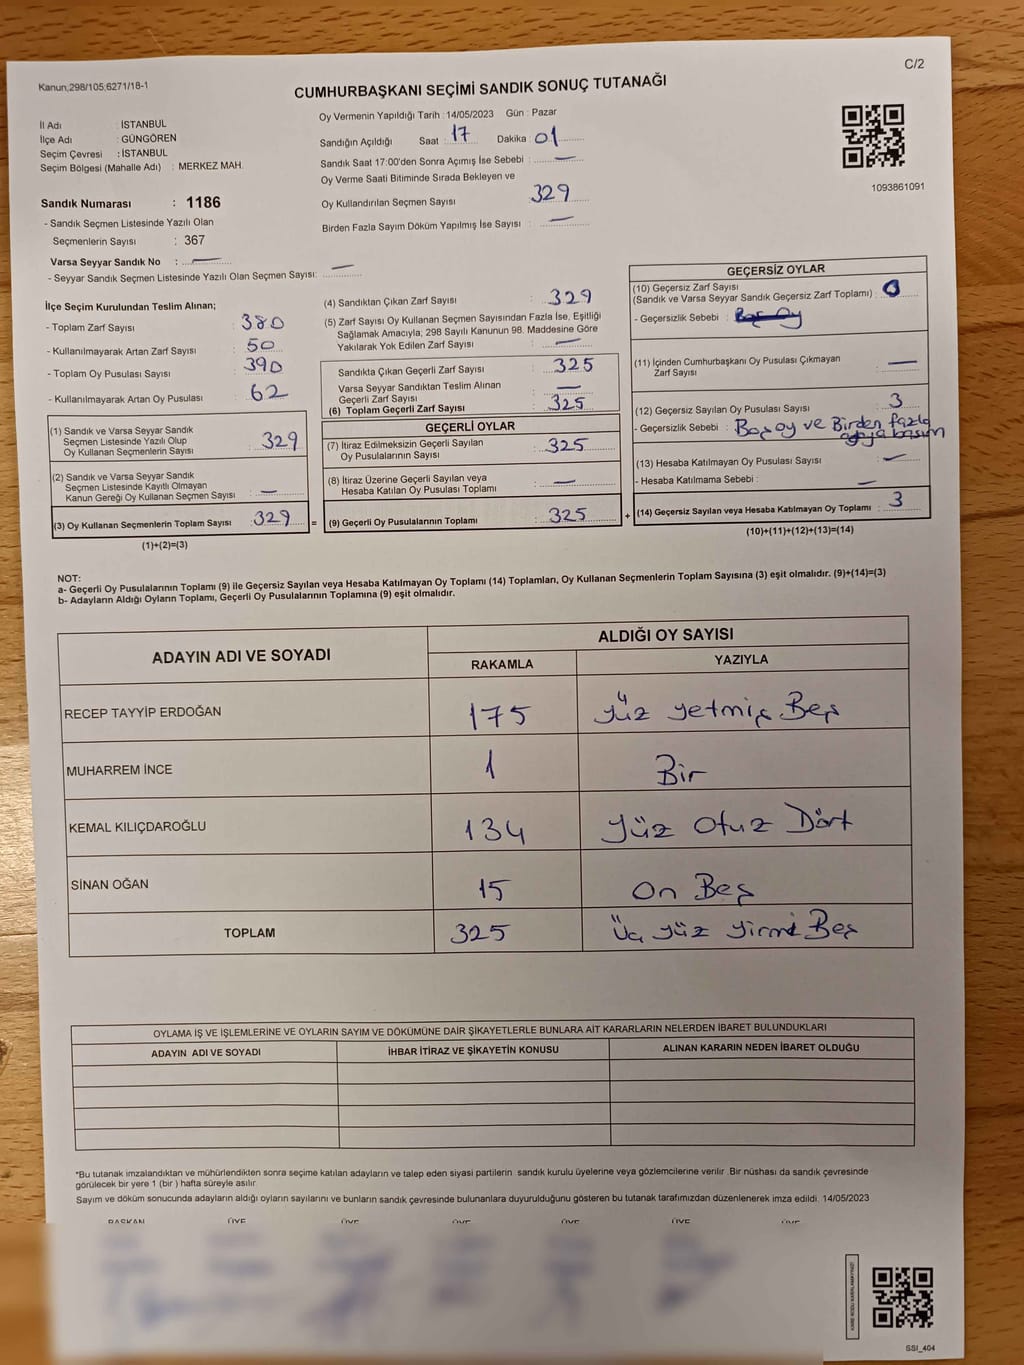 Kanun,298/105,6271/18-1
C/2
CUMHURBAŞKANI SEÇİMİ SANDIK SONUÇ TUTANAĞI
İl Adı : İSTANBUL
İlçe Adı : GÜNGÖREN
Seçim Çevresi : İSTANBUL
Seçim Bölgesi (Mahalle Adı) : MERKEZ MAH.
Sandık Numarası : 1186
- Sandık Seçmen Listesinde Yazılı Olan
Seçmenlerin Sayısı : 367
Varsa Seyyar Sandık No : —
- Seyyar Sandık Seçmen Listesinde Yazılı Olan Seçmen Sayısı: —
Oy Vermenin Yapıldığı Tarih : 14/05/2023 Gün : Pazar
Sandığın Açıldığı Saat : 17 Dakika : 01
Sandık Saat 17:00'den Sonra Açımış İse Sebebi : —
Oy Verme Saati Bitiminde Sırada Bekleyen ve
Oy Kullandırılan Seçmen Sayısı : 329
Birden Fazla Sayım Döküm Yapılmış İse Sayısı : —
1093861091
İlçe Seçim Kurulundan Teslim Alınan;
- Toplam Zarf Sayısı : 380
- Kullanılmayarak Artan Zarf Sayısı : 50
- Toplam Oy Pusulası Sayısı : 390
- Kullanılmayarak Artan Oy Pusulası : 62
(1) Sandık ve Varsa Seyyar Sandık
Seçmen Listesinde Yazılı Olup
Oy Kullanan Seçmenlerin Sayısı : 329
(2) Sandık ve Varsa Seyyar Sandık
Seçmen Listesinde Kayıtlı Olmayan
Kanun Gereği Oy Kullanan Seçmen Sayısı : —
(3) Oy Kullanan Seçmenlerin Toplam Sayısı : 329
(1)+(2)=(3)
(4) Sandıktan Çıkan Zarf Sayısı : 329
(5) Zarf Sayısı Oy Kullanan Seçmen Sayısından Fazla İse, Eşitliği
Sağlamak Amacıyla; 298 Sayılı Kanunun 98. Maddesine Göre
Yakılarak Yok Edilen Zarf Sayısı : —
Sandıkta Çıkan Geçerli Zarf Sayısı : 325
Varsa Seyyar Sandıktan Teslim Alınan
Geçerli Zarf Sayısı : —
(6) Toplam Geçerli Zarf Sayısı : 325
GEÇERLİ OYLAR
(7) İtiraz Edilmeksizin Geçerli Sayılan
Oy Pusulalarının Sayısı : 325
(8) İtiraz Üzerine Geçerli Sayılan veya
Hesaba Katılan Oy Pusulası Toplamı : —
= (9) Geçerli Oy Pusulalarının Toplamı : 325 +
GEÇERSİZ OYLAR
(10) Geçersiz Zarf Sayısı
(Sandık ve Varsa Seyyar Sandık Geçersiz Zarf Toplamı) : 0
- Geçersizlik Sebebi : Boş Oy
(11) İçinden Cumhurbaşkanı Oy Pusulası Çıkmayan
Zarf Sayısı : —
(12) Geçersiz Sayılan Oy Pusulası Sayısı : 3
- Geçersizlik Sebebi : Boş oy ve Birden fazla
adaya basım
(13) Hesaba Katılmayan Oy Pusulası Sayısı : —
- Hesaba Katılmama Sebebi : —
(14) Geçersiz Sayılan veya Hesaba Katılmayan Oy Toplamı : 3
(10)+(11)+(12)+(13)=(14)
NOT:
a- Geçerli Oy Pusulalarının Toplamı (9) ile Geçersiz Sayılan veya Hesaba Katılmayan Oy Toplamı (14) Toplamları, Oy Kullanan Seçmenlerin Toplam Sayısına (3) eşit olmalıdır. (9)+(14)=(3)
b- Adayların Aldığı Oyların Toplamı, Geçerli Oy Pusulalarının Toplamına (9) eşit olmalıdır.
ADAYIN ADI VE SOYADI
ALDIĞI OY SAYISI
RAKAMLA YAZIYLA
RECEP TAYYİP ERDOĞAN 175 yüz yetmiş Beş
MUHARREM İNCE 1 Bir
KEMAL KILIÇDAROĞLU 134 Yüz Otuz Dört
SİNAN OĞAN 15 On Beş
TOPLAM 325 Üç yüz yirmi Beş
OYLAMA İŞ VE İŞLEMLERİNE VE OYLARIN SAYIM VE DÖKÜMÜNE DAİR ŞİKAYETLERLE BUNLARA AİT KARARLARIN NELERDEN İBARET BULUNDUKLARI
ADAYIN ADI VE SOYADI İHBAR İTİRAZ VE ŞİKAYETİN KONUSU ALINAN KARARIN NEDEN İBARET OLDUĞU
*Bu tutanak imzalandıktan ve mühürlendikten sonra seçime katılan adayların ve talep eden siyasi partilerin sandık kurulu üyelerine veya gözlemcilerine verilir .Bir nüshası da sandık çevresinde
görülecek bir yere 1 (bir ) hafta süreyle asılır
Sayım ve döküm sonucunda adayların aldığı oyların sayılarını ve bunların sandık çevresinde bulunanlara duyurulduğunu gösteren bu tutanak tarafımızdan düzenlenerek imza edildi. 14/05/2023
BAŞKAN ÜYE ÜYE ÜYE ÜYE ÜYE ÜYE
SSI_404